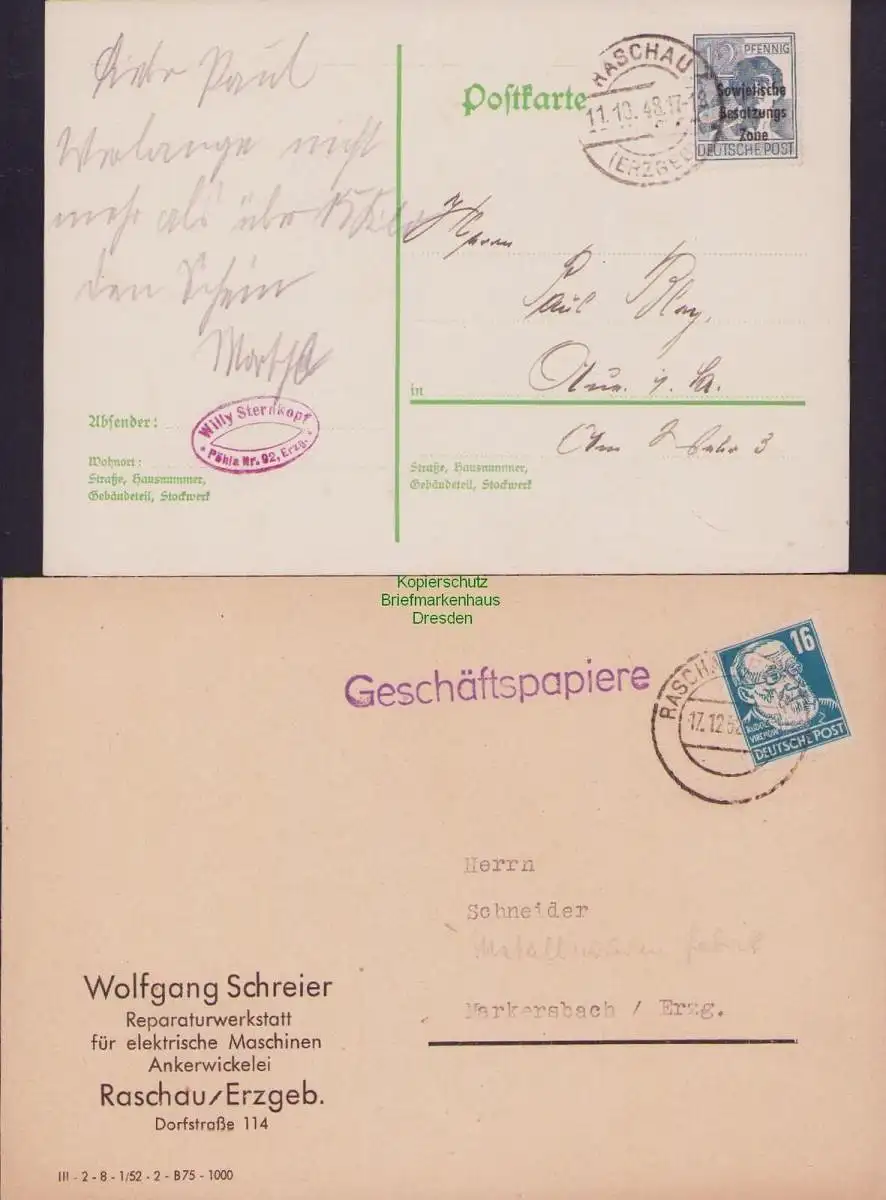 Liebe Paul
Verlange nicht
mehr als über
den Schein
Martha
Postkarte
RASCHAU
11.10.48.17-18
(ERZGEB
12 PFENNIG
Sowjetische
Besatzungs
Zone
DEUTSCHE POST
Herrn
Paul
in
Aue i. Sa.
3
Absender:
Willy Sternkopf
Pöhla Nr. 92, Erzg.
Wohnort:
Straße, Hausnummer,
Gebäudeteil, Stockwerk
Straße, Hausnummer,
Gebäudeteil, Stockwerk
Kopierschutz
Briefmarkenhaus
Dresden
Geschäftspapiere
RASCHA
17.12.52
16
RUDOLF
VIRCHOW
DEUTSCHE POST
Herrn
Schneider
Metallwaren fabrik
Markersbach / Erzg.
Wolfgang Schreier
Reparaturwerkstatt
für elektrische Maschinen
Ankerwickelei
Raschau/Erzgeb.
Dorfstraße 114
III - 2 - 8 - 1/52 - 2 - B75 - 1000